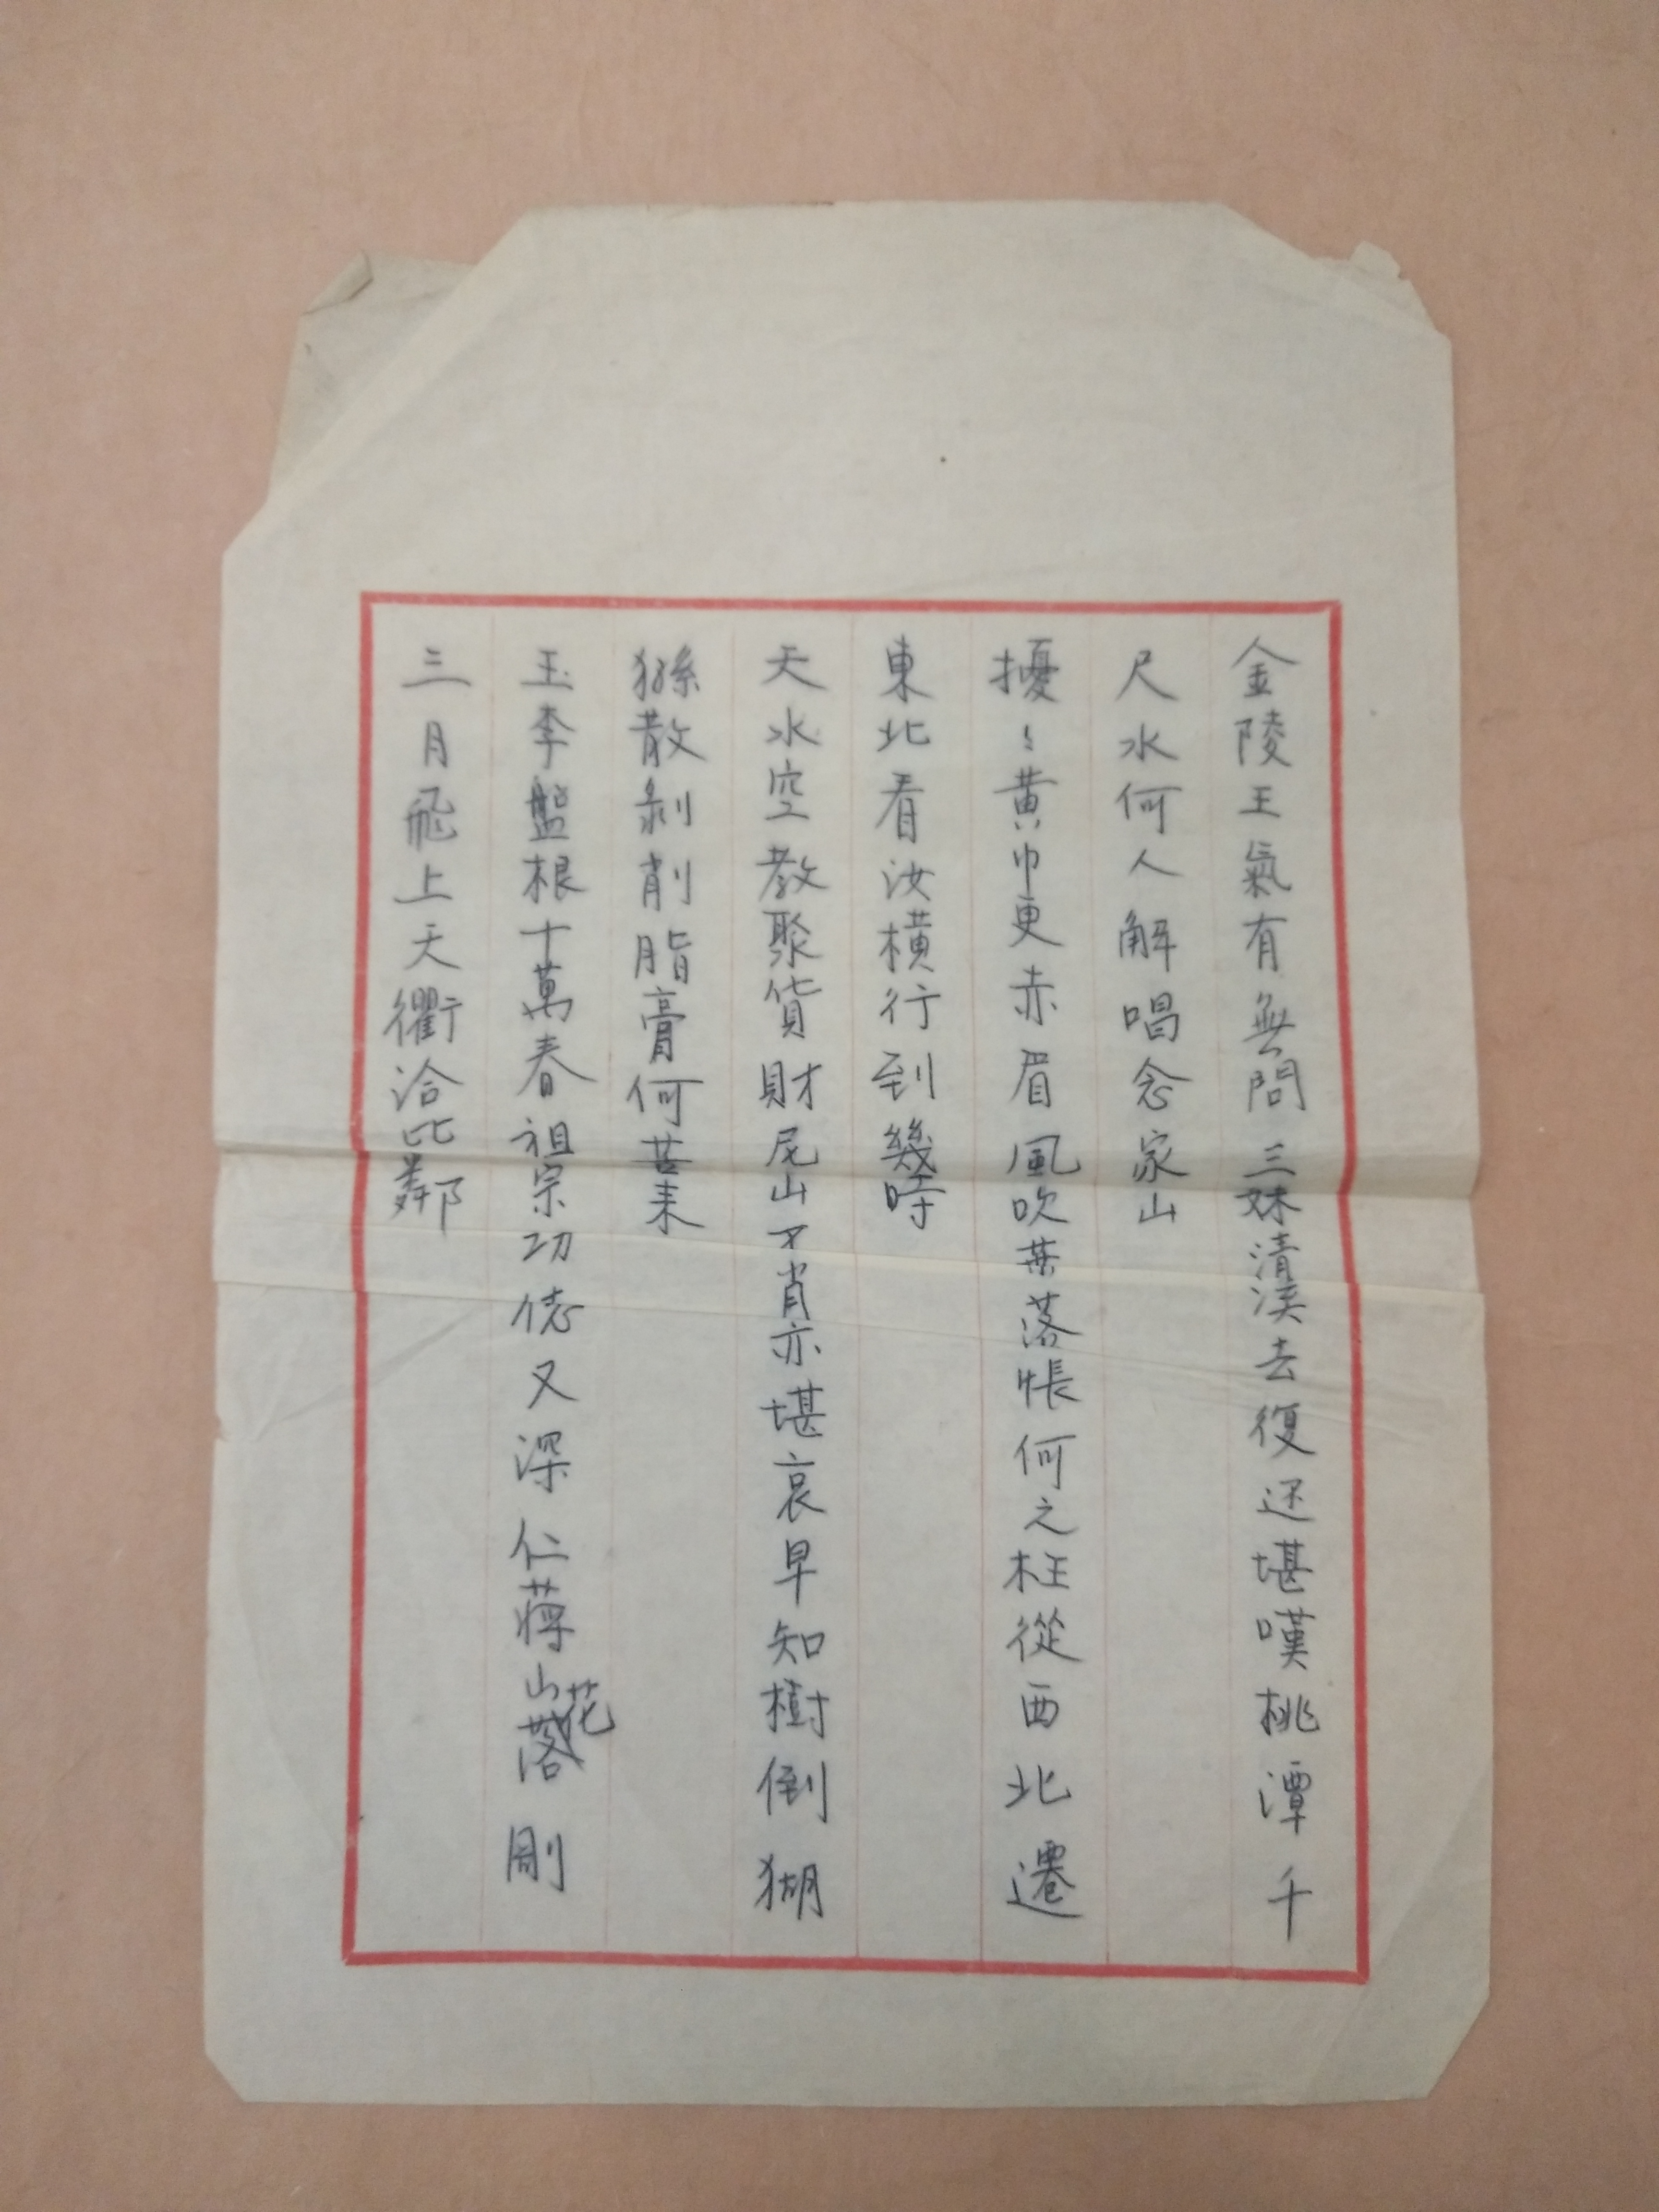 金陵王氣有無問三妹清溪去復还堪嘆桃潭千
尺水何人解唱念家山
擾〻黄巾更赤眉風吹葉落悵何之枉從西北遷
東北看汝横行到幾時
天水空教聚貨財尼山不肖亦堪哀早知樹倒猢
猻散剥削脂膏何苦来
玉李盤根十萬春祖宗功德又深仁蔣山花落剛
三月飛上天衢洽比鄰